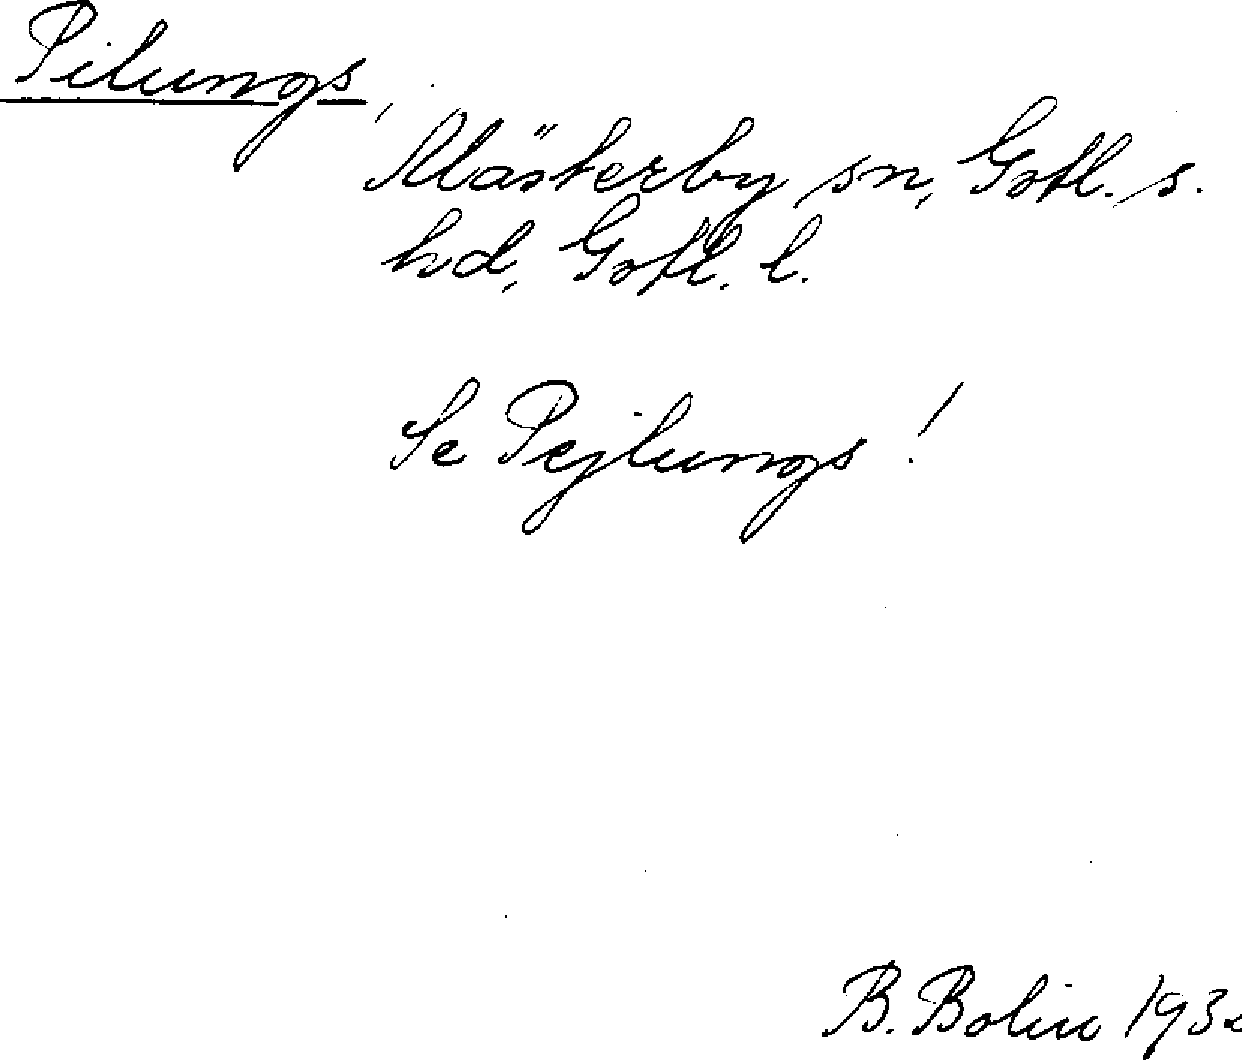 Pilungs,
Mästerby sn, Gotl. s.
hd, Gotl. l.
Se Pejlungs!
B. Bolin